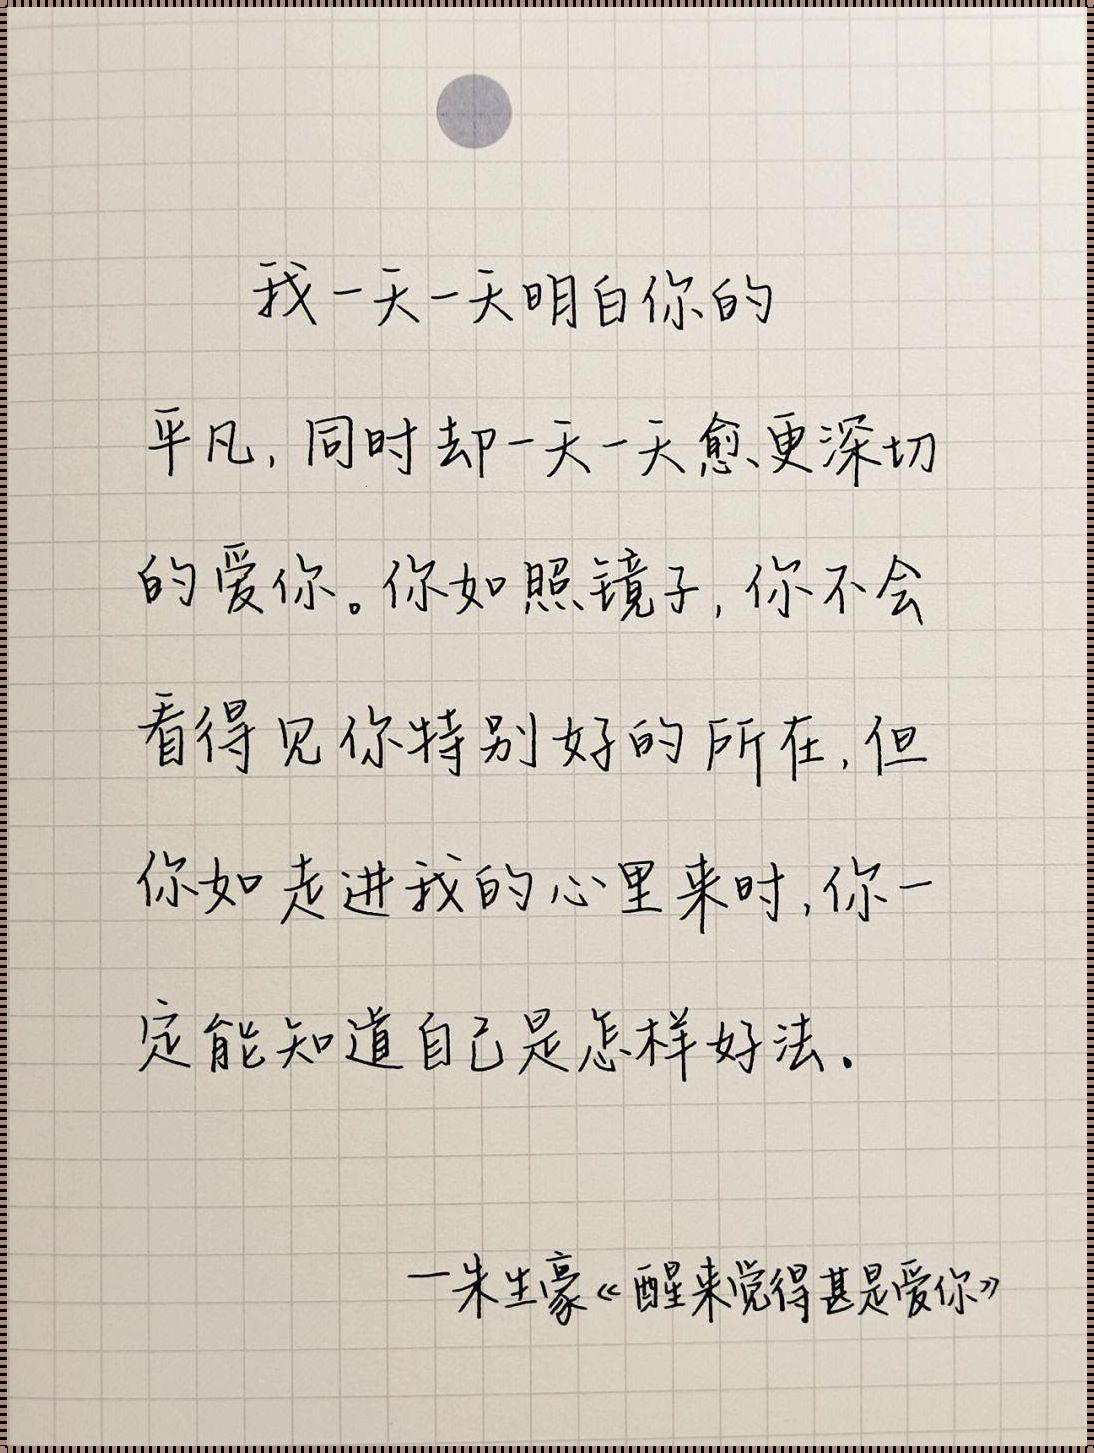 我一天一天明白你的
平凡,同时却一天一天愈更深切
的爱你。你如照镜子,你不会
看得见你特别好的所在,但
你如走进我的心里来时,你一
定能知道自己是怎样好法.
—朱生豪《醒来觉得甚是爱你》